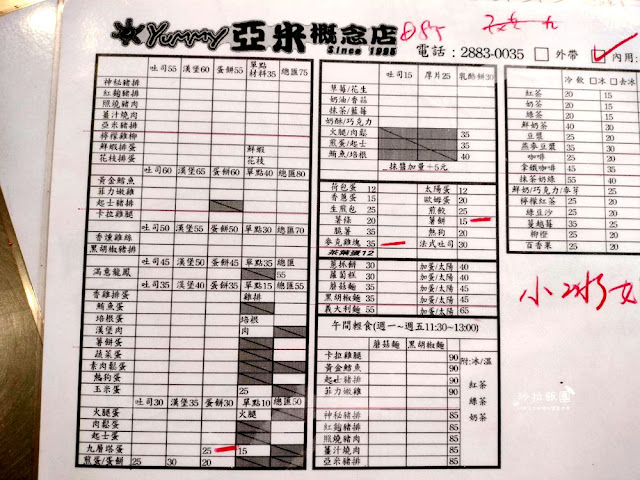 Yummy 亞米概念店
Since 1995
電話：2883-0035 外帶 內用：
吐司55 漢堡60 蛋餅55 單點材料35 總匯75
神秘豬排
紅麴豬排
照燒豬排
薑汁燒肉
亞米豬排
檸檬雞柳
鮮蝦排蛋 鮮蝦
花枝排蛋 花枝
吐司60 漢堡65 蛋餅60 單點40 總匯80
黃金鱈魚
菲力嫩雞
起士豬排
卡拉雞腿
吐司50 漢堡55 蛋餅50 單點30 總匯70
香燻雞絲
黑胡椒豬排
吐司45 漢堡50 蛋餅45 單點35 總匯
滿意龍鳳 55
吐司35 漢堡40 蛋餅35 單點15 總匯55
香雞排蛋 雞排
鮪魚蛋
培根蛋 培根
漢堡蛋 肉
薯餅蛋
蔬菜蛋
素肉鬆蛋
熱狗蛋
玉米蛋 25
吐司30 漢堡35 蛋餅30 單點10 總匯50
火腿蛋 火腿
肉鬆蛋
起士蛋
九層塔蛋 25 15
煎蛋/蛋餅 25 30 20
吐司15 厚片25 乳酪餅30
草莓/花生
奶油/香蒜
抹茶/藍莓
奶酥/巧克力
火腿/肉鬆 35
煎蛋/起士 35
鮪魚/培根 40
抹醬加蛋+5元
荷包蛋 12 太陽蛋 12
香蔥蛋 15 歐姆蛋 20
生煎包 25 煎餃 25
薯條 20 薯餅 15
脆薯 35 熱狗 20
麥克雞塊 35 法式吐司 30
茶葉蛋12
蔥抓餅 30 加蛋/太陽 40
蘿蔔糕 30 加蛋/太陽 40
蘑菇麵 35 加蛋/太陽 45
黑胡椒麵 35 加蛋/太陽 45
義大利麵 55 加蛋/太陽 65
午間輕食(週一～週五11:30~13:00)
蘑菇麵 黑胡椒麵
卡拉雞腿 90 附:冰/溫
黃金鱈魚 90
起士豬排 90 紅茶
菲力嫩雞 90 綠茶
奶茶
神秘豬排 85
紅麴豬排 85
照燒豬排 85
薑汁豬排 85
亞米豬排 85
冷飲 冰 去冰
紅茶 20 15
奶茶 20 15
綠茶 20 15
鮮奶茶 40 30
豆漿 25 20
燕麥豆漿 35 30
咖啡 25 25
拿鐵咖啡 45 35
抹茶奶綠 55 40
鮮奶/巧克力/麥芽 25
檸檬紅茶 25 20
綠豆沙 25 20
蔓越莓 35 25
柳橙 25 20
百香果 25 20